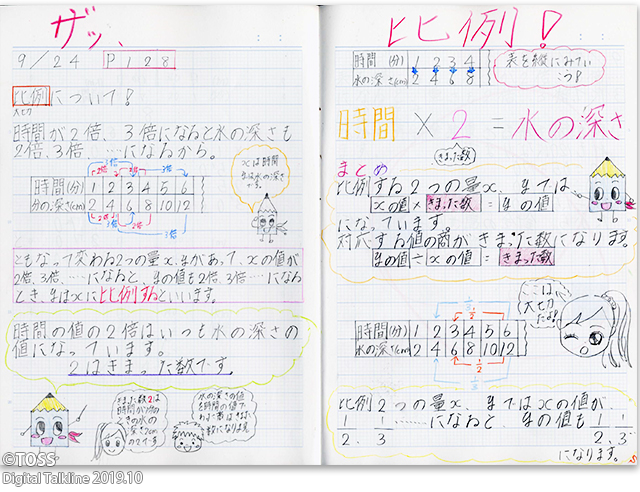 ザッ、
9/24 P128
比例について!
大切
時間が2倍、3倍になると水の深さも
2倍、3倍…になるから。
3倍
2倍
xは時間
yは水の深さ
時間(分) 1 2 3 4 5 6
分の深さ(cm) 2 4 6 8 10 12
2倍
3倍
ともなって変わる2つの量x、yがあって、xの値が
2倍、3倍、……になると、yの値も2倍、3倍…になる
とき、yはxに比例するといいます。
時間の値の2倍はいつも水の深さの
値になっています。
2はきまった数です。
きまった数2は
時間が1分の
ときの水の
深さ2cm
の2です
水の深さの値
を時間の値で
わると
比例!
時間(分) 1 2 3 4
水の深さ(cm) 2 4 6 8
表を縦にみてい
こう!
時間 × 2 = 水の深さ
きまった数
まとめ
比例する2つの量x、yでは
xの値×きまった数=yの値
になっています。
対応する値の商がきまった数になります。
yの値÷xの値=きまった数
ここは
大切
だよ!
1/3
1/2
時間(分) 1 2 3 4 5 6
水の深さ(cm) 2 4 6 8 10 12
1/2
1/3
比例2つの量x、yではxの値が
1/2、1/3……になると yの値も1/2、1/3
になります。
©TOSS
Digital Talkline 2019.10